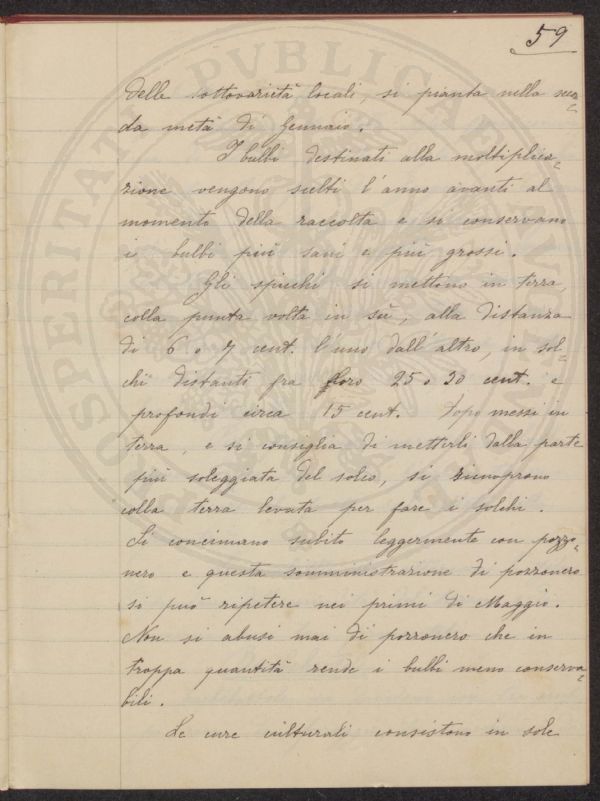 59
delle sottovarietà locali, si pianta nella secon=
da metà di Gennaio.
I bulbi destinati alla moltiplica=
zione vengono scelti l'anno avanti al
momento della raccolta e si conservano
i bulbi più sani e più grossi.
Gli spicchi si mettono in terra,
colla punta volta in sù, alla distanza
di 6 o 7 cent. l'uno dall'altro, in sol=
chi distanti fra loro 25 o 30 cent. e
profondi circa 15 cent. Dopo messi in
terra, e si consiglia di metterli dalla parte
più soleggiata del solco, si ricuoprono
colla terra levata per fare i solchi.
Si concimano subito leggermente con pozzo=
nero e questa somministrazione di pozzonero
si può ripetere nei primi di Maggio.
Non si abusi mai di pozzonero che in
troppa quantità rende i bulbi meno conserva=
bili.
Le cure culturali consistono in sole